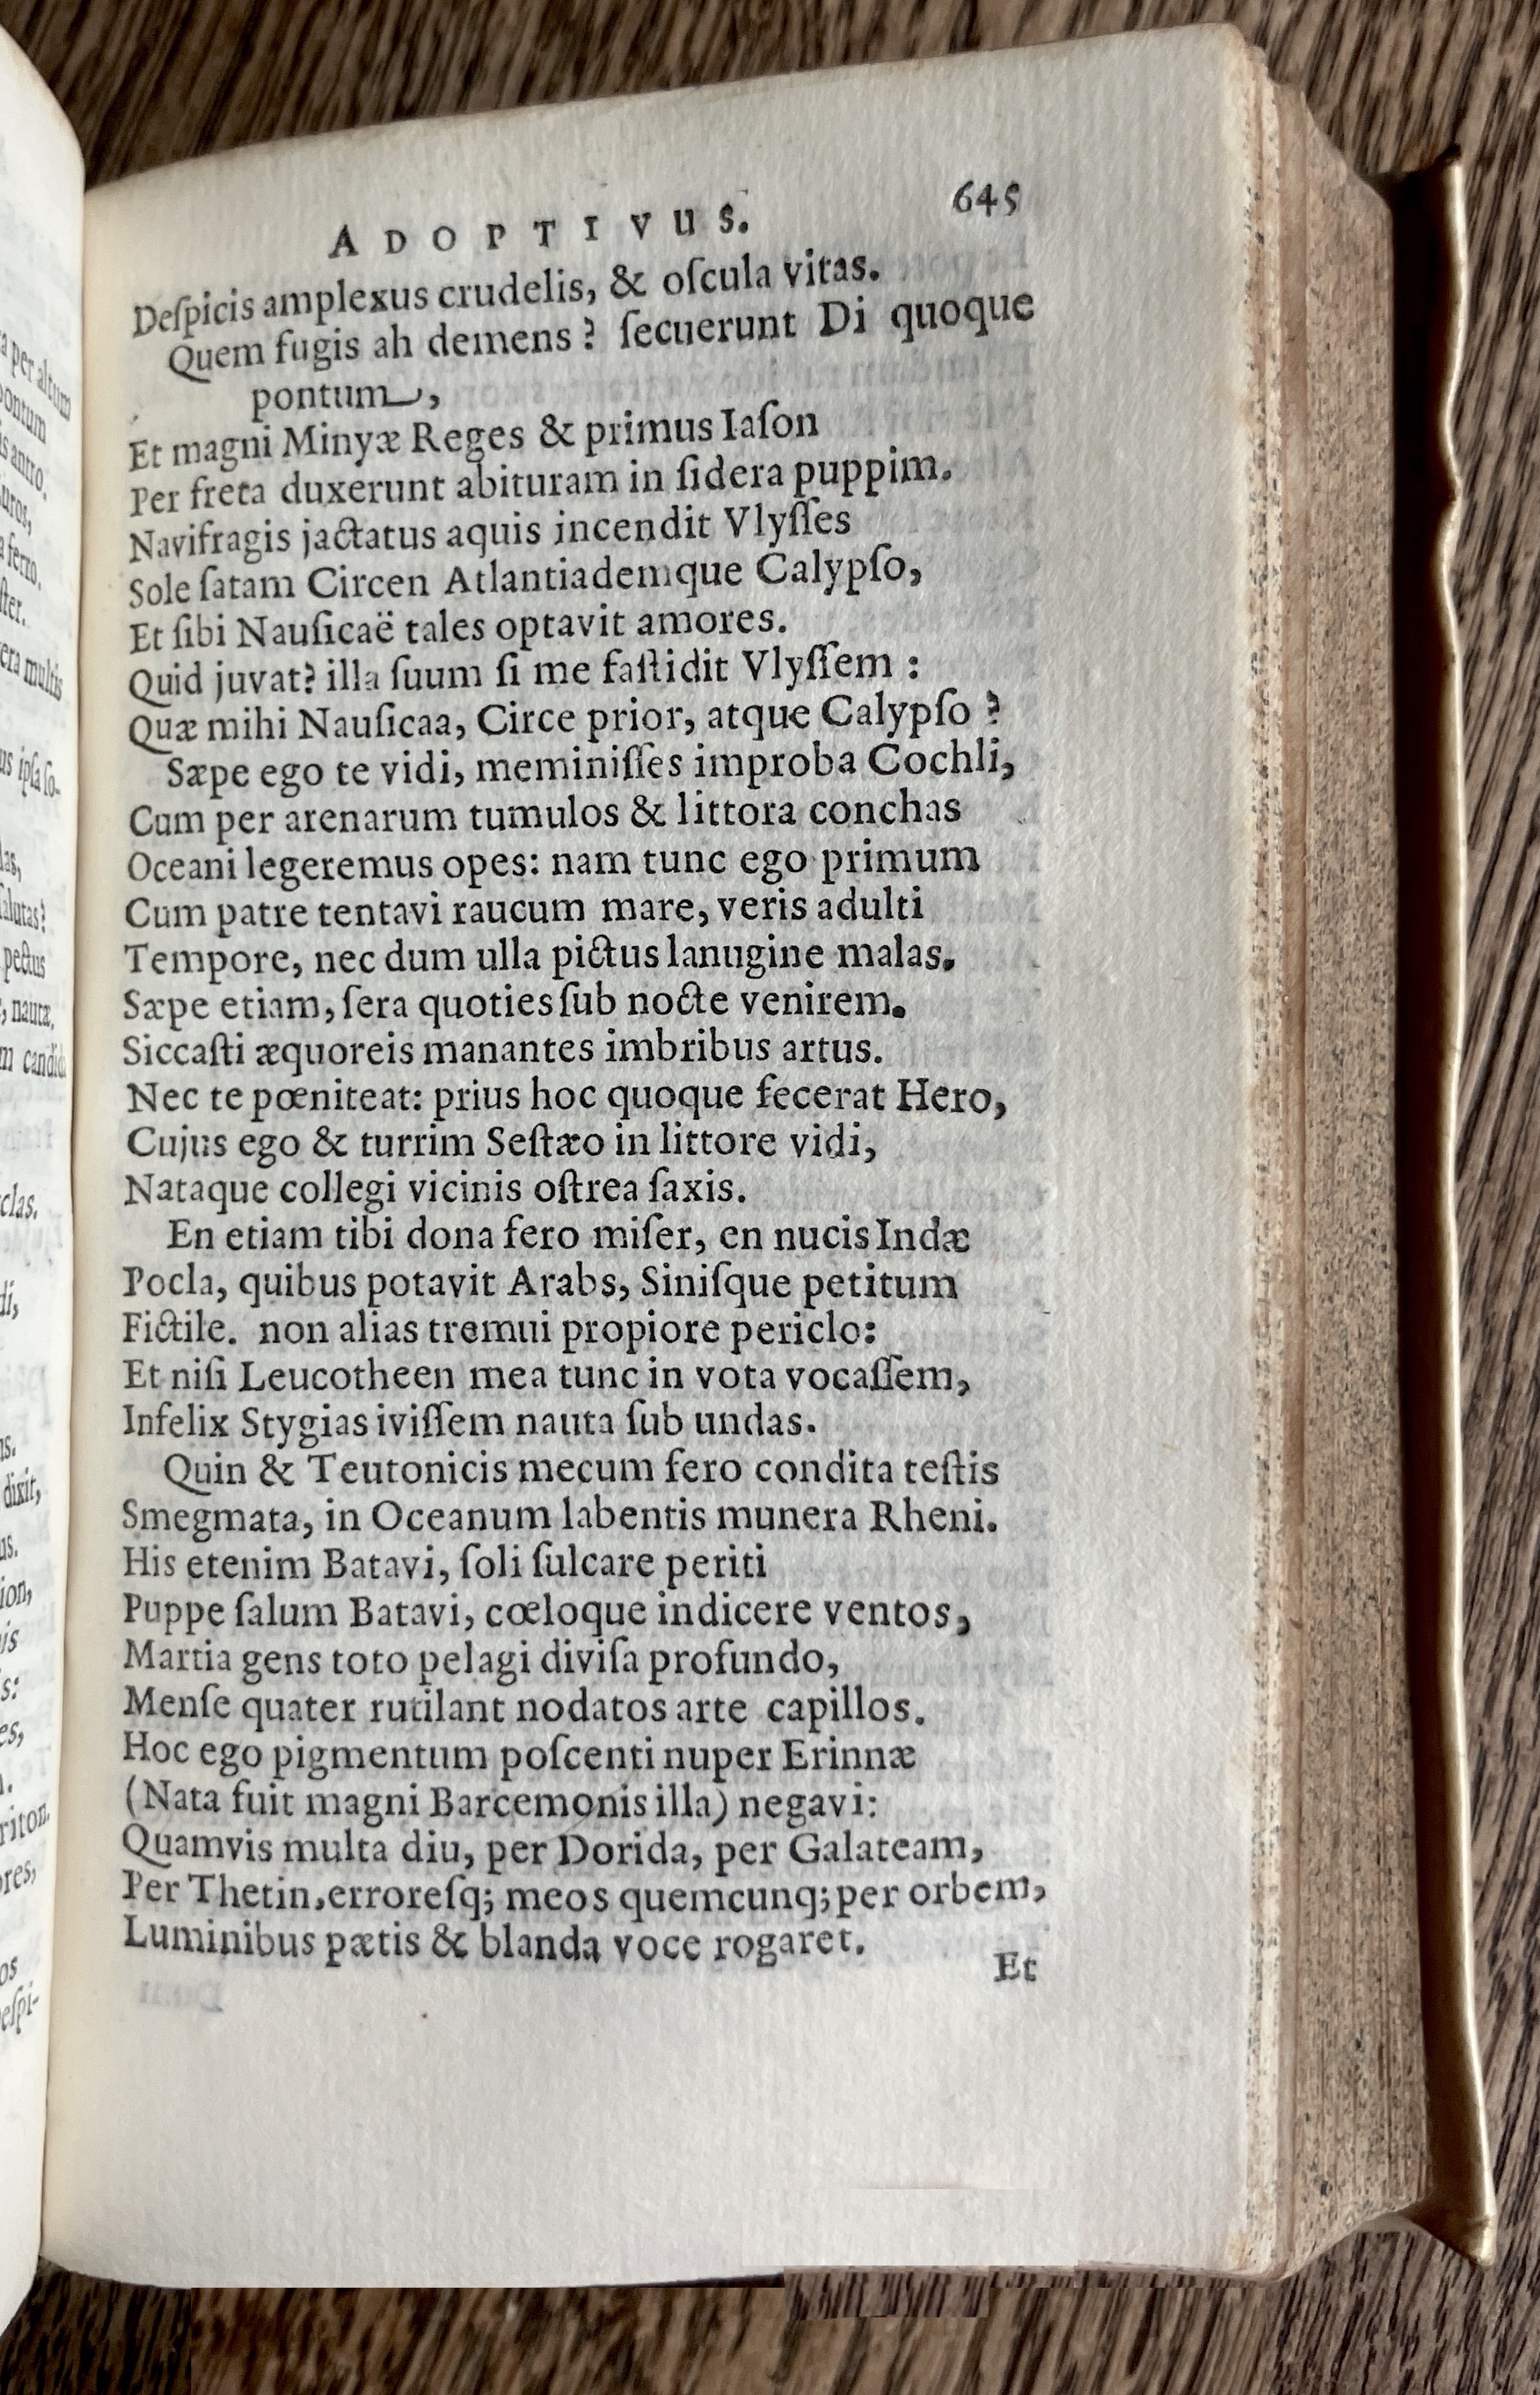 ADOPTIVUS. 645
Deſpicis amplexus crudelis, & oſcula vitas.
Quem fugis ah demens? ſecuerunt Di quoque
pontum,
Et magni Minyæ Reges & primus Iaſon
Per freta duxerunt abituram in ſidera puppim.
Navifragis jactatus aquis incendit Vlyſſes
Sole ſatam Circen Atlantiademque Calypſo,
Et ſibi Nauſicaë tales optavit amores.
Quid juvat? illa ſuum ſi me faſtidit Vlyſſem :
Quæ mihi Nauſicaa, Circe prior, atque Calypſo ?
Sæpe ego te vidi, meminiſſes improba Cochli,
Cum per arenarum tumulos & littora conchas
Oceani legeremus opes: nam tunc ego primum
Cum patre tentavi raucum mare, veris adulti
Tempore, nec dum ulla pictus lanugine malas.
Sæpe etiam, ſera quoties ſub nocte venirem.
Siccaſti æquoreis manantes imbribus artus.
Nec te pœniteat: prius hoc quoque fecerat Hero,
Cujus ego & turrim Seſtæo in littore vidi,
Nataque collegi vicinis oſtrea ſaxis.
En etiam tibi dona fero miſer, en nucis Indæ
Pocla, quibus potavit Arabs, Siniſque petitum
Fictile. non alias tremui propiore periclo:
Et niſi Leucotheen mea tunc in vota vocaſſem,
Infelix Stygias iviſſem nauta ſub undas.
Quin & Teutonicis mecum fero condita teſtis
Smegmata, in Oceanum labentis munera Rheni.
His etenim Batavi, ſoli ſulcare periti
Puppe ſalum Batavi, cœloque indicere ventos,
Martia gens toto pelagi diviſa profundo,
Menſe quater rutilant nodatos arte capillos.
Hoc ego pigmentum poſcenti nuper Erinnæ
(Nata fuit magni Barcemonis illa) negavi:
Quamvis multa diu, per Dorida, per Galateam,
Per Thetin, erroreſq; meos quemcunq; per orbem,
Luminibus pætis & blanda voce rogaret.
Et